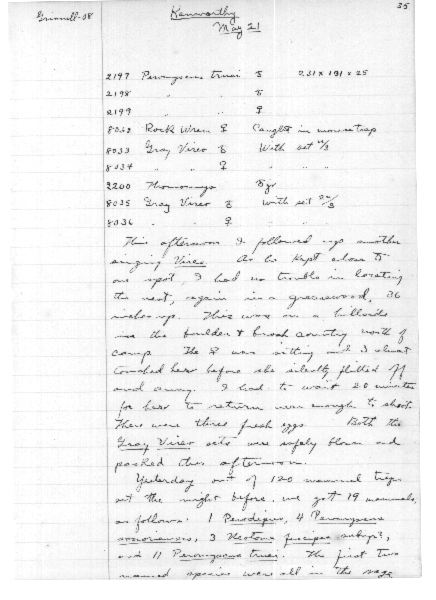 Grinnell-08
Kenworthy
May 21
35
2197 Peromyscus truei ♂ 231 x 191 x 25
2198 " " ♂
2199 " " ♀
8032 Rock Wren ♀ Caught in mousetrap
8033 Gray Vireo ♂ With set n/3
8034 " " ♀ " " "
2200 Thomomys ♂ yr
8035 Gray Vireo ♂ with set n/3
8036 " ♀ " "
This afternoon I followed up another
singing Vireo. As he kept close to
one spot, I had no trouble in locating
the nest, again in a greasewood, 36
inches up. This was on a hillside
in the boulder & brush country north of
camp. The ♀ was sitting and I almost
touched her before she silently flitted off
and away. I had to wait 20 minutes
for her to return near enough to shoot.
There were three fresh eggs. Both the
Gray Vireo sets were safely blown and
packed this afternoon.
Yesterday out of 120 mammal traps
set the night before, we got 19 mammals,
as follows: 1 Perodipus, 4 Peromyscus
sonoriensis, 3 Neotoma fuscipes subsp?,
and 11 Peromyscus truei. The first two
named species were all in the sage